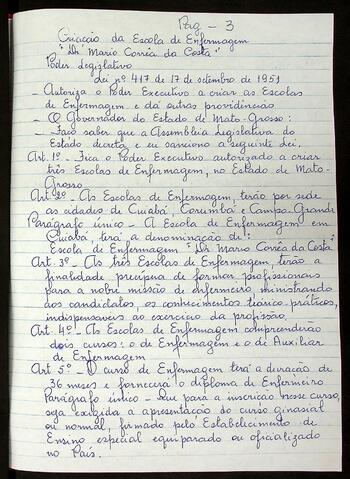 Pag - 3
Criação da Escola de Enfermagem
"Dr Mario Corrêa da Costa"
Poder Legislativo
Lei nº 417 de 17 de setembro de 1951
- Autoriza o Poder Executivo a criar as Escolas
de Enfermagem e dá outras providências
- O Governador do Estado de Mato-Grosso:
- Faço saber que a Assembléia Legislativa do
Estado decreta e eu sanciono a seguinte Lei.
Art. 1º - Fica o Poder Executivo autorizado a criar
três Escolas de Enfermagem, no Estado de Mato-
Grosso
Art. 2º - As Escolas de Enfermagem, terão por sede
as cidades de Cuiabá, Corumbá e Campo-Grande
Parágrafo único - A Escola de Enfermagem em
Cuiabá, terá a denominação de:
Escola de Enfermagem "Dr Mario Corrêa da Costa"
Art. 3º - As três Escolas de Enfermagem, terão a
finalidade precipua de formar profissionais
para a nobre missão de enfermeiro ministrando
aos candidatos, os conhecimentos teórico-práticos,
indispensáveis ao exercício da profissão.
Art. 4º - As Escolas de Enfermagem compreenderão
dois cursos: o de Enfermagem e o de Auxiliar
de Enfermagem
Art 5º - O curso de Enfermagem terá a duração de
36 meses e fornecerá o diploma de Enfermeiro
Parágrafo único - Que para a inscrição nesse curso,
seja exigida a apresentação do curso ginasial
ou normal, firmado pelo Estabelecimento de
Ensino especial equiparado ou oficializado
no País.